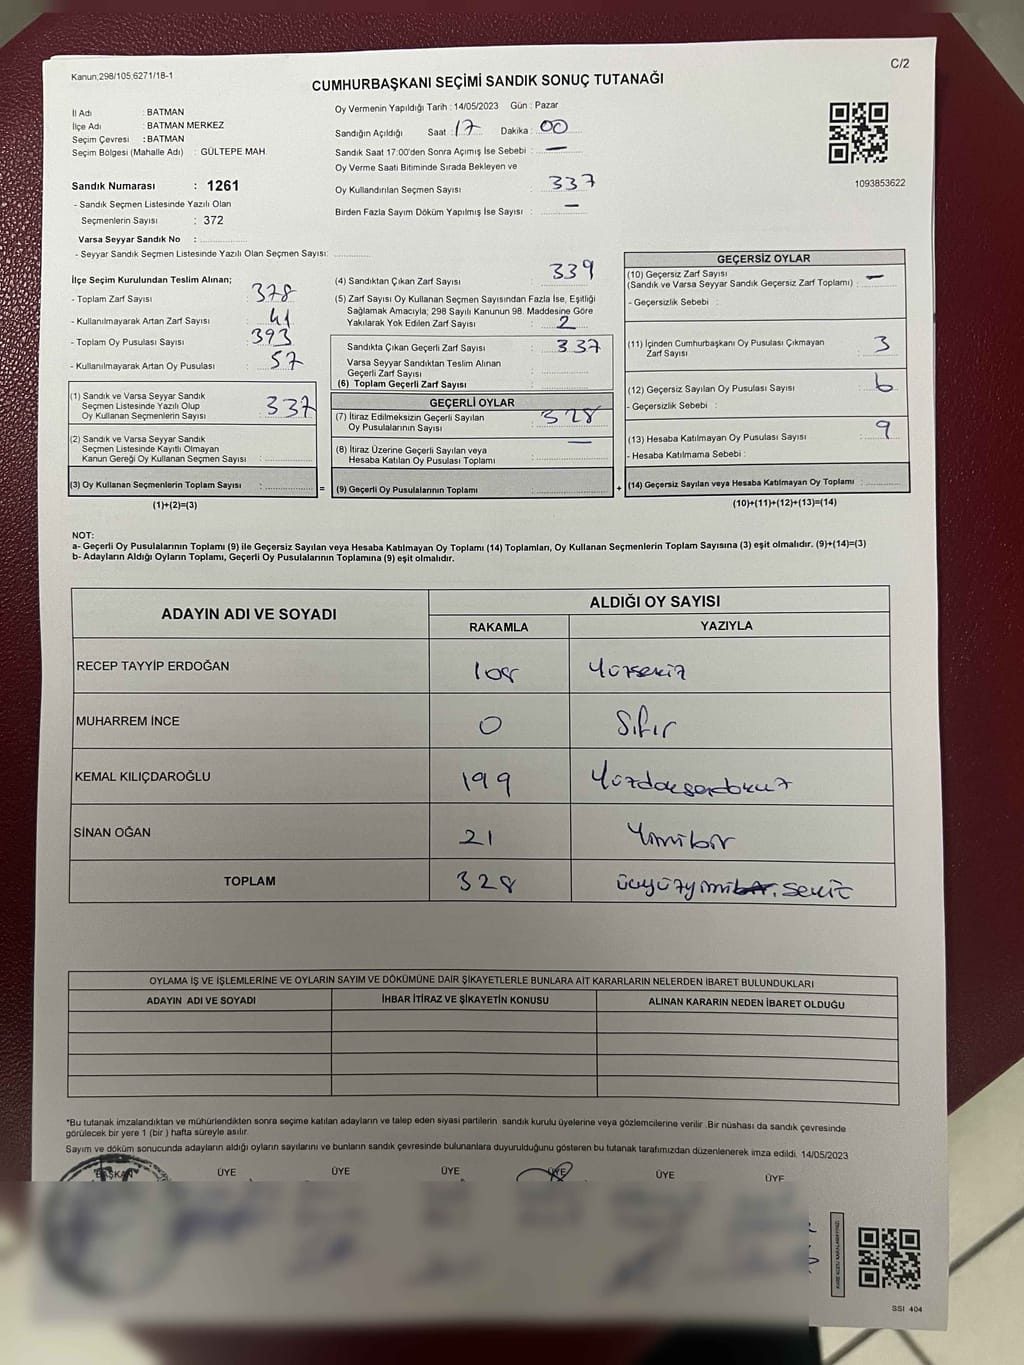 Kanun;298/105;6271/18-1
C/2
CUMHURBAŞKANI SEÇİMİ SANDIK SONUÇ TUTANAĞI
İl Adı : BATMAN
İlçe Adı : BATMAN MERKEZ
Seçim Çevresi : BATMAN
Seçim Bölgesi (Mahalle Adı) : GÜLTEPE MAH.
Sandık Numarası : 1261
- Sandık Seçmen Listesinde Yazılı Olan
Seçmenlerin Sayısı : 372
Varsa Seyyar Sandık No :
- Seyyar Sandık Seçmen Listesinde Yazılı Olan Seçmen Sayısı:
Oy Vermenin Yapıldığı Tarih : 14/05/2023 Gün : Pazar
Sandığın Açıldığı Saat : 17 Dakika : 00
Sandık Saat 17:00'den Sonra Açımış İse Sebebi : —
Oy Verme Saati Bitiminde Sırada Bekleyen ve
Oy Kullandırılan Seçmen Sayısı : 337
Birden Fazla Sayım Döküm Yapılmış İse Sayısı : —
1093853622
İlçe Seçim Kurulundan Teslim Alınan;
- Toplam Zarf Sayısı : 378
- Kullanılmayarak Artan Zarf Sayısı : 41
- Toplam Oy Pusulası Sayısı : 393
- Kullanılmayarak Artan Oy Pusulası : 57
(1) Sandık ve Varsa Seyyar Sandık
Seçmen Listesinde Yazılı Olup
Oy Kullanan Seçmenlerin Sayısı : 337
(2) Sandık ve Varsa Seyyar Sandık
Seçmen Listesinde Kayıtlı Olmayan
Kanun Gereği Oy Kullanan Seçmen Sayısı :
(3) Oy Kullanan Seçmenlerin Toplam Sayısı : =
(1)+(2)=(3)
(4) Sandıktan Çıkan Zarf Sayısı : 339
(5) Zarf Sayısı Oy Kullanan Seçmen Sayısından Fazla İse, Eşitliği
Sağlamak Amacıyla; 298 Sayılı Kanunun 98. Maddesine Göre
Yakılarak Yok Edilen Zarf Sayısı : 2
Sandıkta Çıkan Geçerli Zarf Sayısı : 337
Varsa Seyyar Sandıktan Teslim Alınan
Geçerli Zarf Sayısı :
(6) Toplam Geçerli Zarf Sayısı :
GEÇERLİ OYLAR
(7) İtiraz Edilmeksizin Geçerli Sayılan
Oy Pusulalarının Sayısı : 328
(8) İtiraz Üzerine Geçerli Sayılan veya
Hesaba Katılan Oy Pusulası Toplamı : —
(9) Geçerli Oy Pusulalarının Toplamı : +
GEÇERSİZ OYLAR
(10) Geçersiz Zarf Sayısı
(Sandık ve Varsa Seyyar Sandık Geçersiz Zarf Toplamı) : —
- Geçersizlik Sebebi :
(11) İçinden Cumhurbaşkanı Oy Pusulası Çıkmayan
Zarf Sayısı : 3
(12) Geçersiz Sayılan Oy Pusulası Sayısı : 6
- Geçersizlik Sebebi :
(13) Hesaba Katılmayan Oy Pusulası Sayısı : 9
- Hesaba Katılmama Sebebi :
(14) Geçersiz Sayılan veya Hesaba Katılmayan Oy Toplamı :
(10)+(11)+(12)+(13)=(14)
NOT:
a- Geçerli Oy Pusulalarının Toplamı (9) ile Geçersiz Sayılan veya Hesaba Katılmayan Oy Toplamı (14) Toplamları, Oy Kullanan Seçmenlerin Toplam Sayısına (3) eşit olmalıdır. (9)+(14)=(3)
b- Adayların Aldığı Oyların Toplamı, Geçerli Oy Pusulalarının Toplamına (9) eşit olmalıdır.
ADAYIN ADI VE SOYADI ALDIĞI OY SAYISI
RAKAMLA YAZIYLA
RECEP TAYYİP ERDOĞAN 108 Yüzsekiz
MUHARREM İNCE 0 Sıfır
KEMAL KILIÇDAROĞLU 199 Yüzdoksandokuz
SİNAN OĞAN 21 Yirmibir
TOPLAM 328 üçyüzyirmi sekiz
OYLAMA İŞ VE İŞLEMLERİNE VE OYLARIN SAYIM VE DÖKÜMÜNE DAİR ŞİKAYETLERLE BUNLARA AİT KARARLARIN NELERDEN İBARET BULUNDUKLARI
ADAYIN ADI VE SOYADI İHBAR İTİRAZ VE ŞİKAYETİN KONUSU ALINAN KARARIN NEDEN İBARET OLDUĞU
*Bu tutanak imzalandıktan ve mühürlendikten sonra seçime katılan adayların ve talep eden siyasi partilerin sandık kurulu üyelerine veya gözlemcilerine verilir .Bir nüshası da sandık çevresinde
görülecek bir yere 1 (bir ) hafta süreyle asılır.
Sayım ve döküm sonucunda adayların aldığı oyların sayılarını ve bunların sandık çevresinde bulunanlara duyurulduğunu gösteren bu tutanak tarafımızdan düzenlenerek imza edildi. 14/05/2023
BAŞKAN ÜYE ÜYE ÜYE ÜYE ÜYE ÜYE
SSI 404